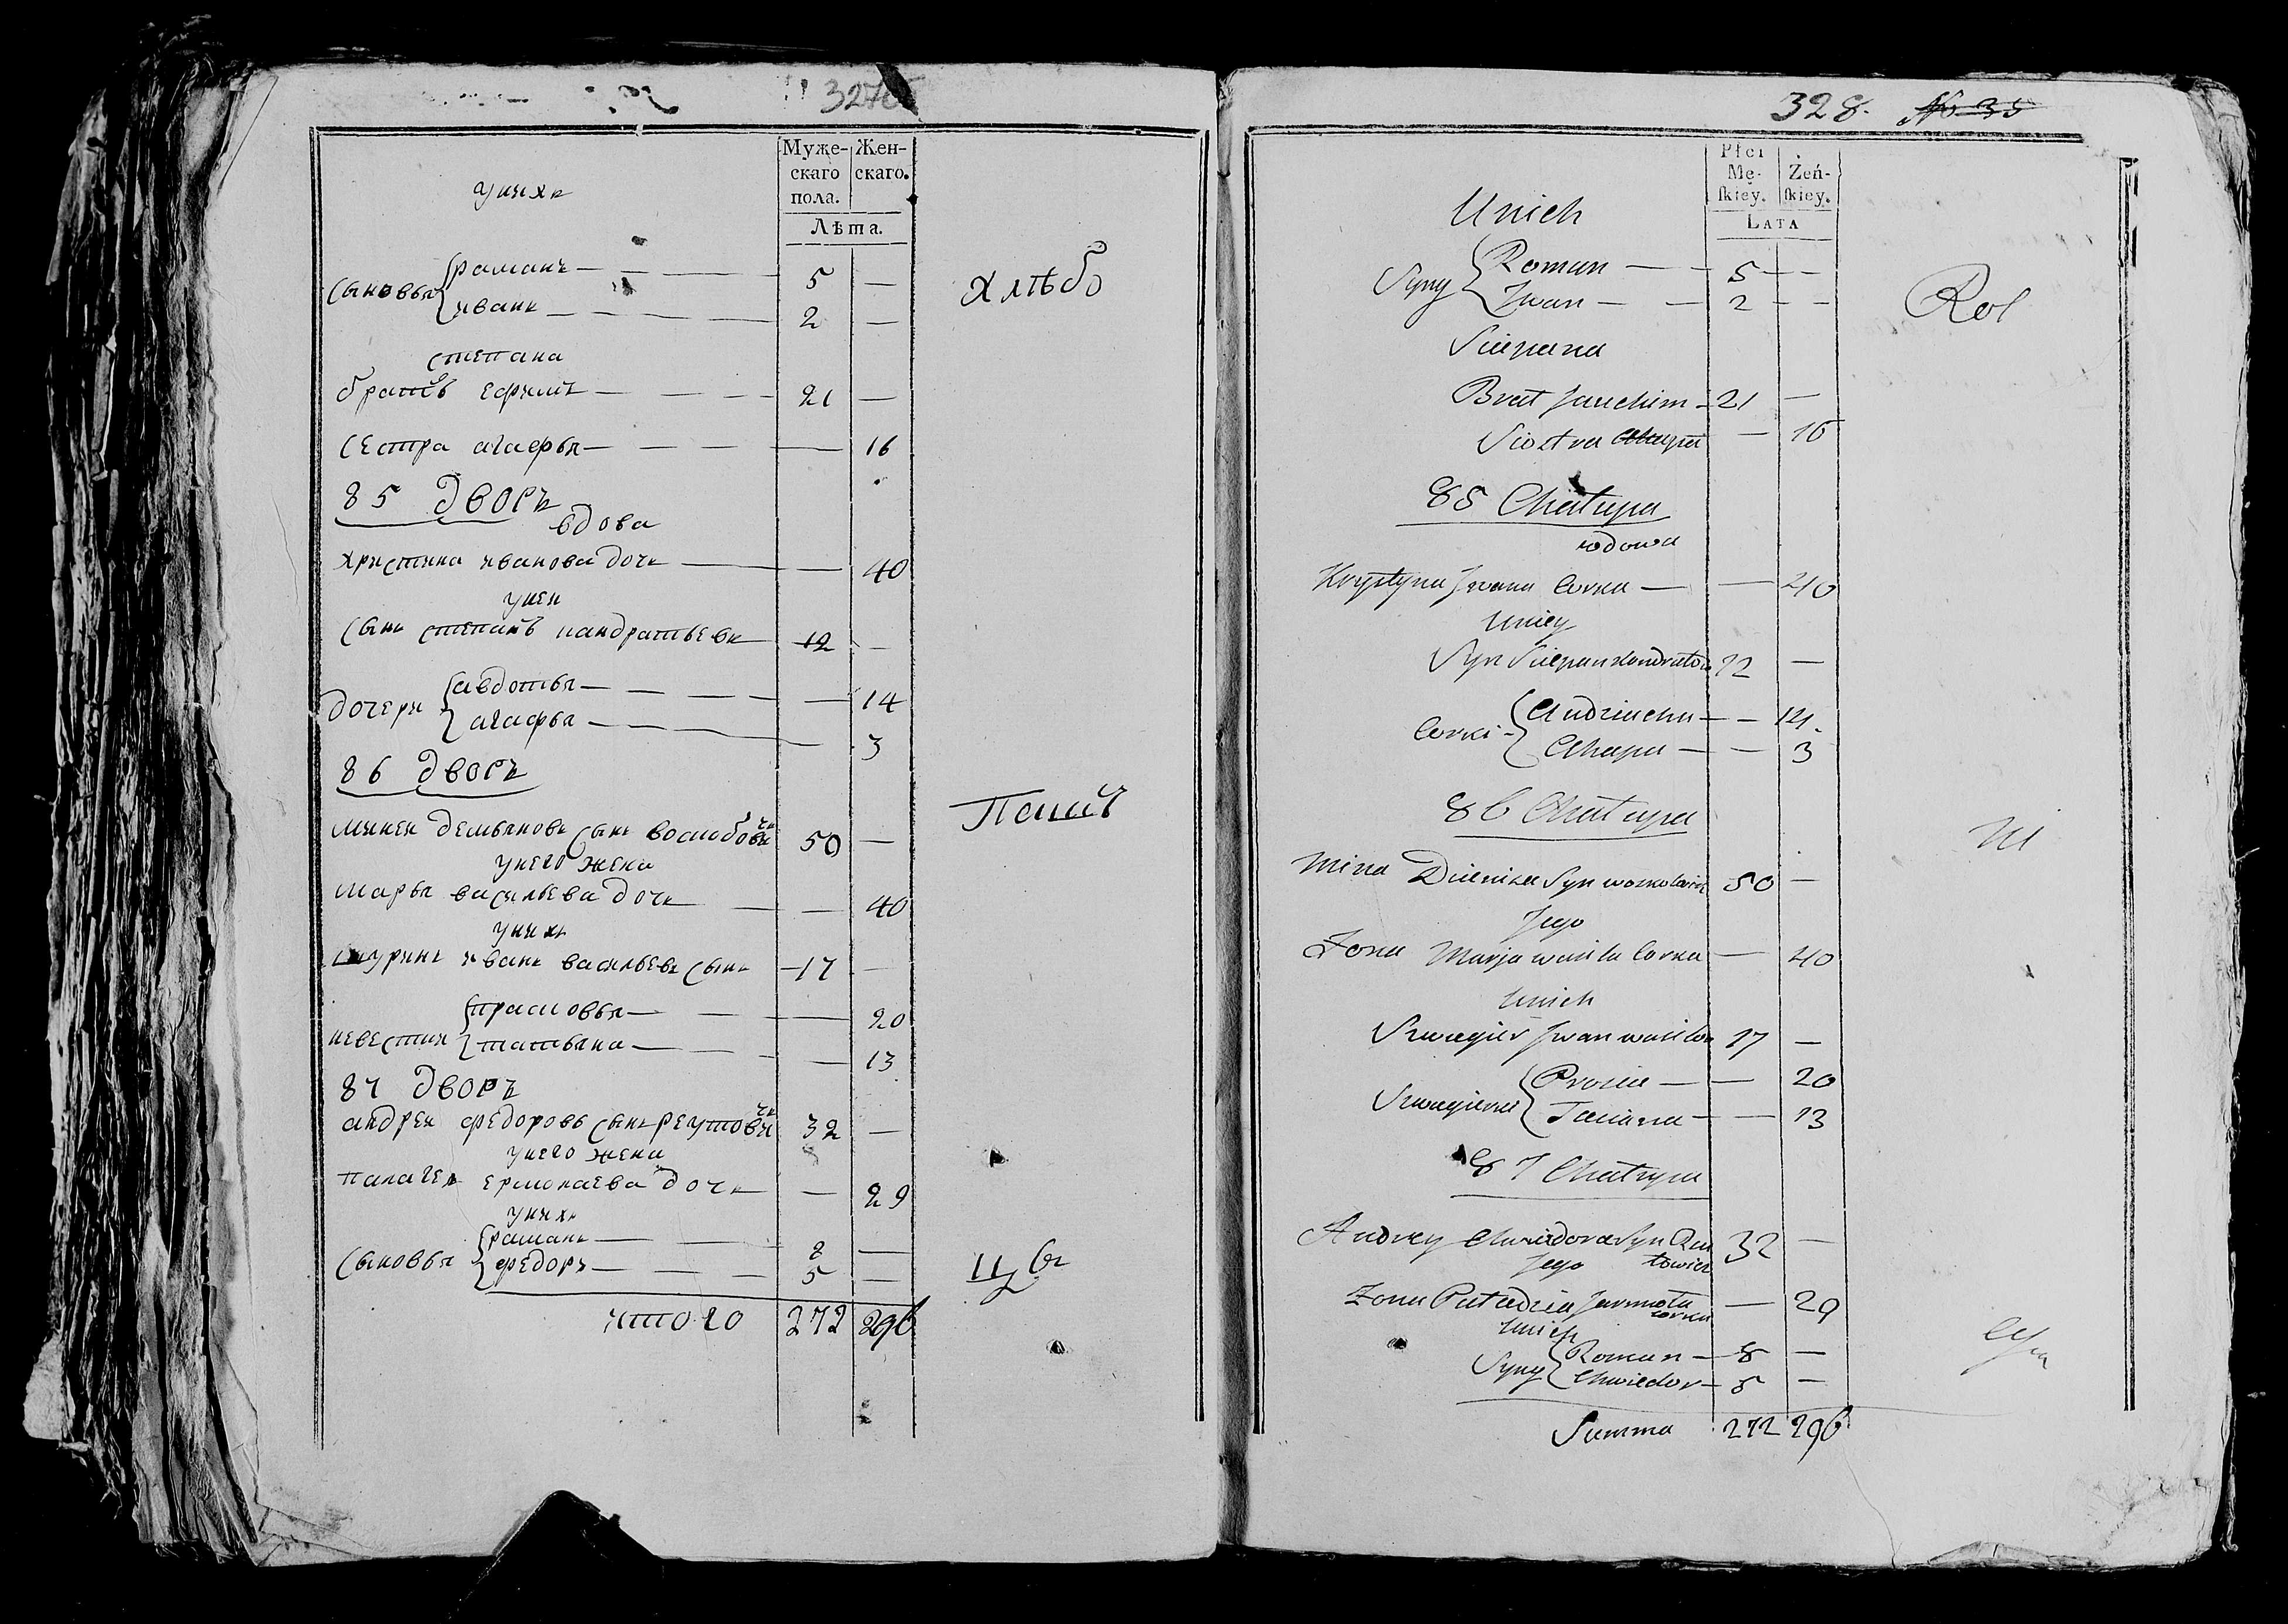 327
Муже-
скаго
пола.
Жен-
скаго.
Лѣта.
унихъ
Сыновья
романъ 5 —
иванъ 2 —
хлѣбо
степана
братъ ефимъ 21 —
сестра агафья — 16
85 дворъ
вдова
христина иванова дочь — 40
унеи
сынъ степанъ кандратьевъ 12 —
дочери
авдотья — 14
агафья — 3
86 дворъ
минеи демьяновъ сынъ воскобовичъ 50 —
Пашит
унего жена
марья васильева дочь — 40
унихъ
шуринъ иванъ васильевъ сынъ 17 —
невестки
прасковья — 20
татьяна — 13
87 дворъ
андреи федоровъ сынъ реутовичъ 32 —
унего жена
палагея ермолаева дочь — 29
унихъ
Сыновья
романъ 8 —
федоръ 5 —
итого 272 296
328. No 35
Płci
Mę-
ſkiey.
Żeń-
ſkiey.
LATA
Unich
Syny
Roman 5 —
Jwan 2 —
Rol
Sciepana
Brat Jauchim 21 —
Siostra Ahapa — 16
85 Chałupa
wdowa
Krystyna Jwana Corka — 40
Uniey
Syn Sciepan Kondratow 12 —
Corki
Audziucha — 14
Ahapa — 3
86 Chałupa
Mina Dziemiana Syn woskobowicz 50 —
Jego
Żona Marja wasila Corka — 40
Unich
Szwagier Jwan wasilow 17 —
Szwagierki
Prosia — 20
Taciana — 13
87 Chałupa
Andrey Chwiedora Syn Reu
towicz 32 —
Jego
Żona Paładzia Jarmoła
corka — 29
Unich
Syny
Roman 8 —
Chwiedor 5 —
Summa 272 296